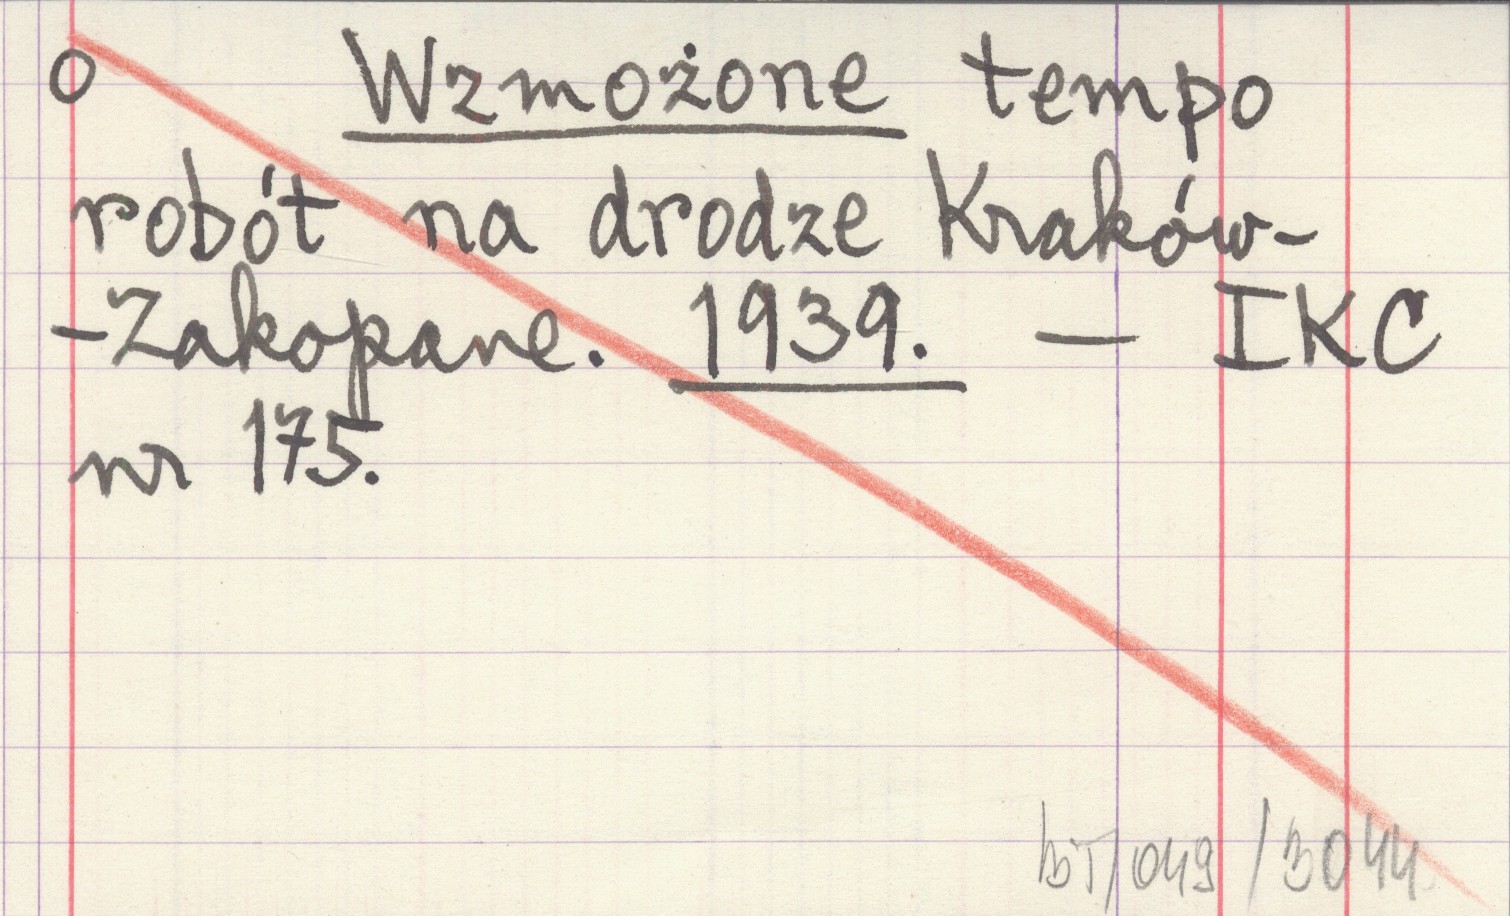 o Wzmożone tempo
robót na drodze Kraków-
-Zakopane. 1939. — IKC
nr 175.
bT/049/3044